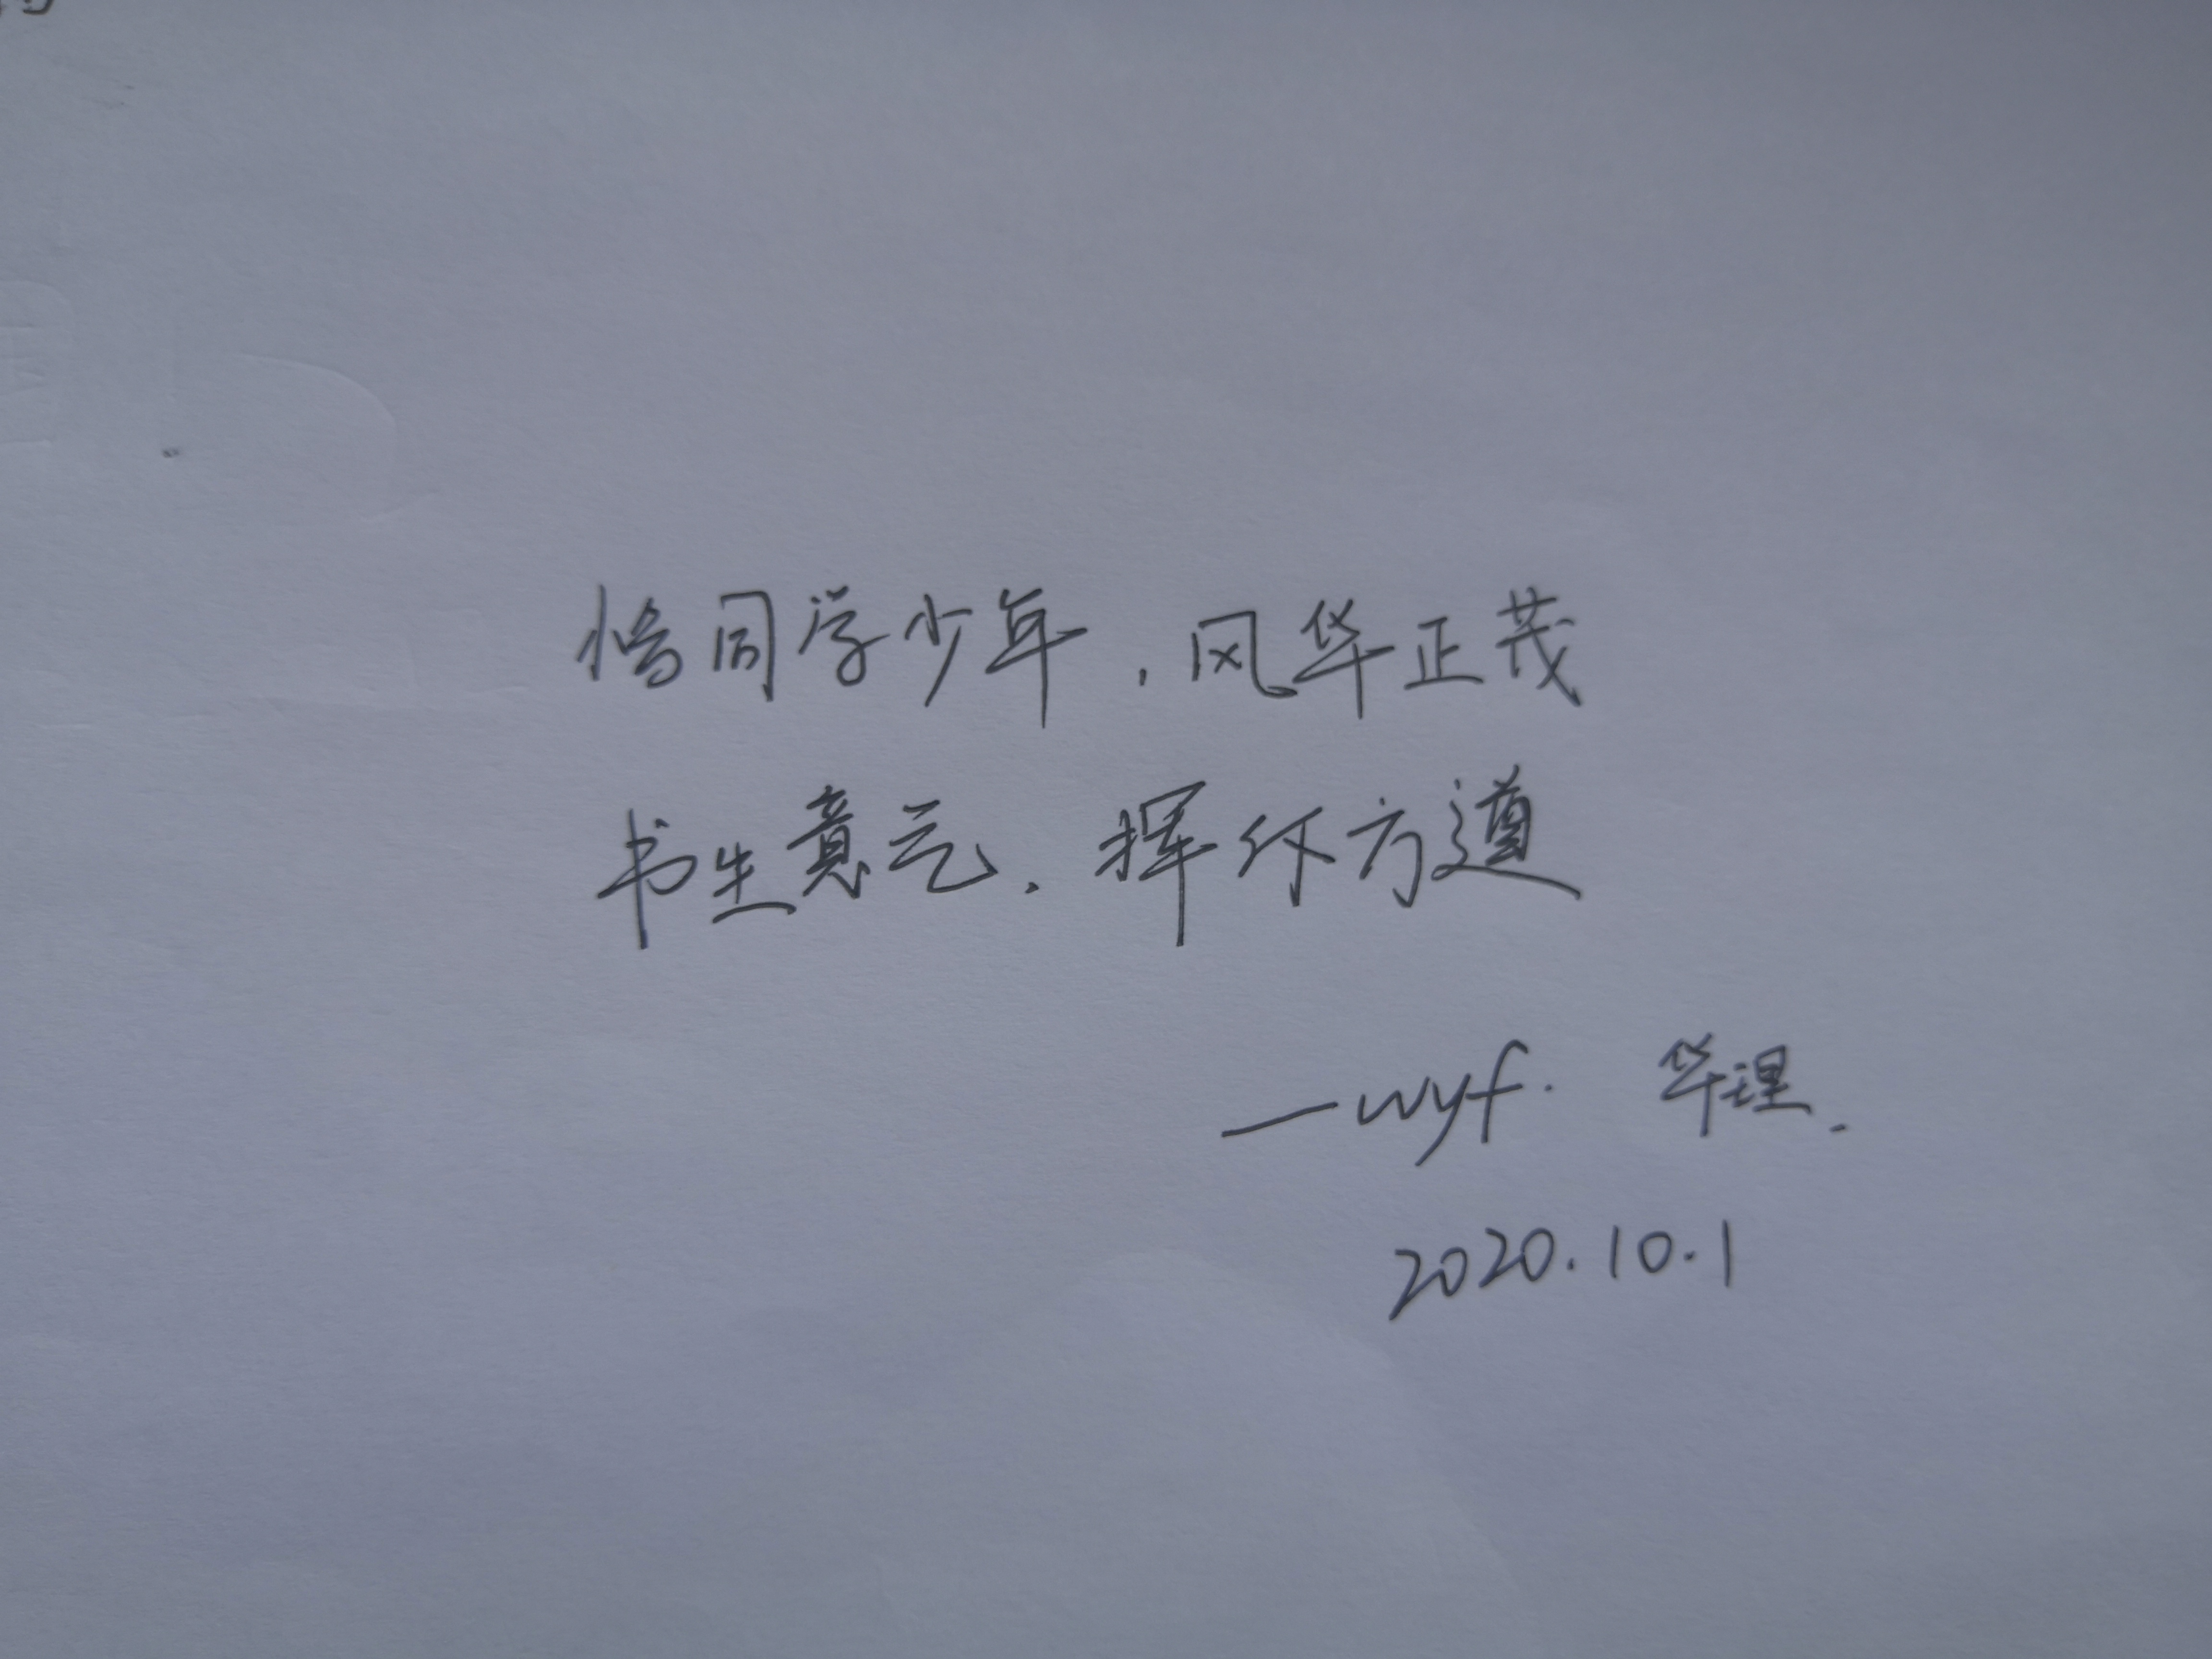 恰同学少年，风华正茂
书生意气，挥斥方遒
—wyf. 华理.
2020.10.1